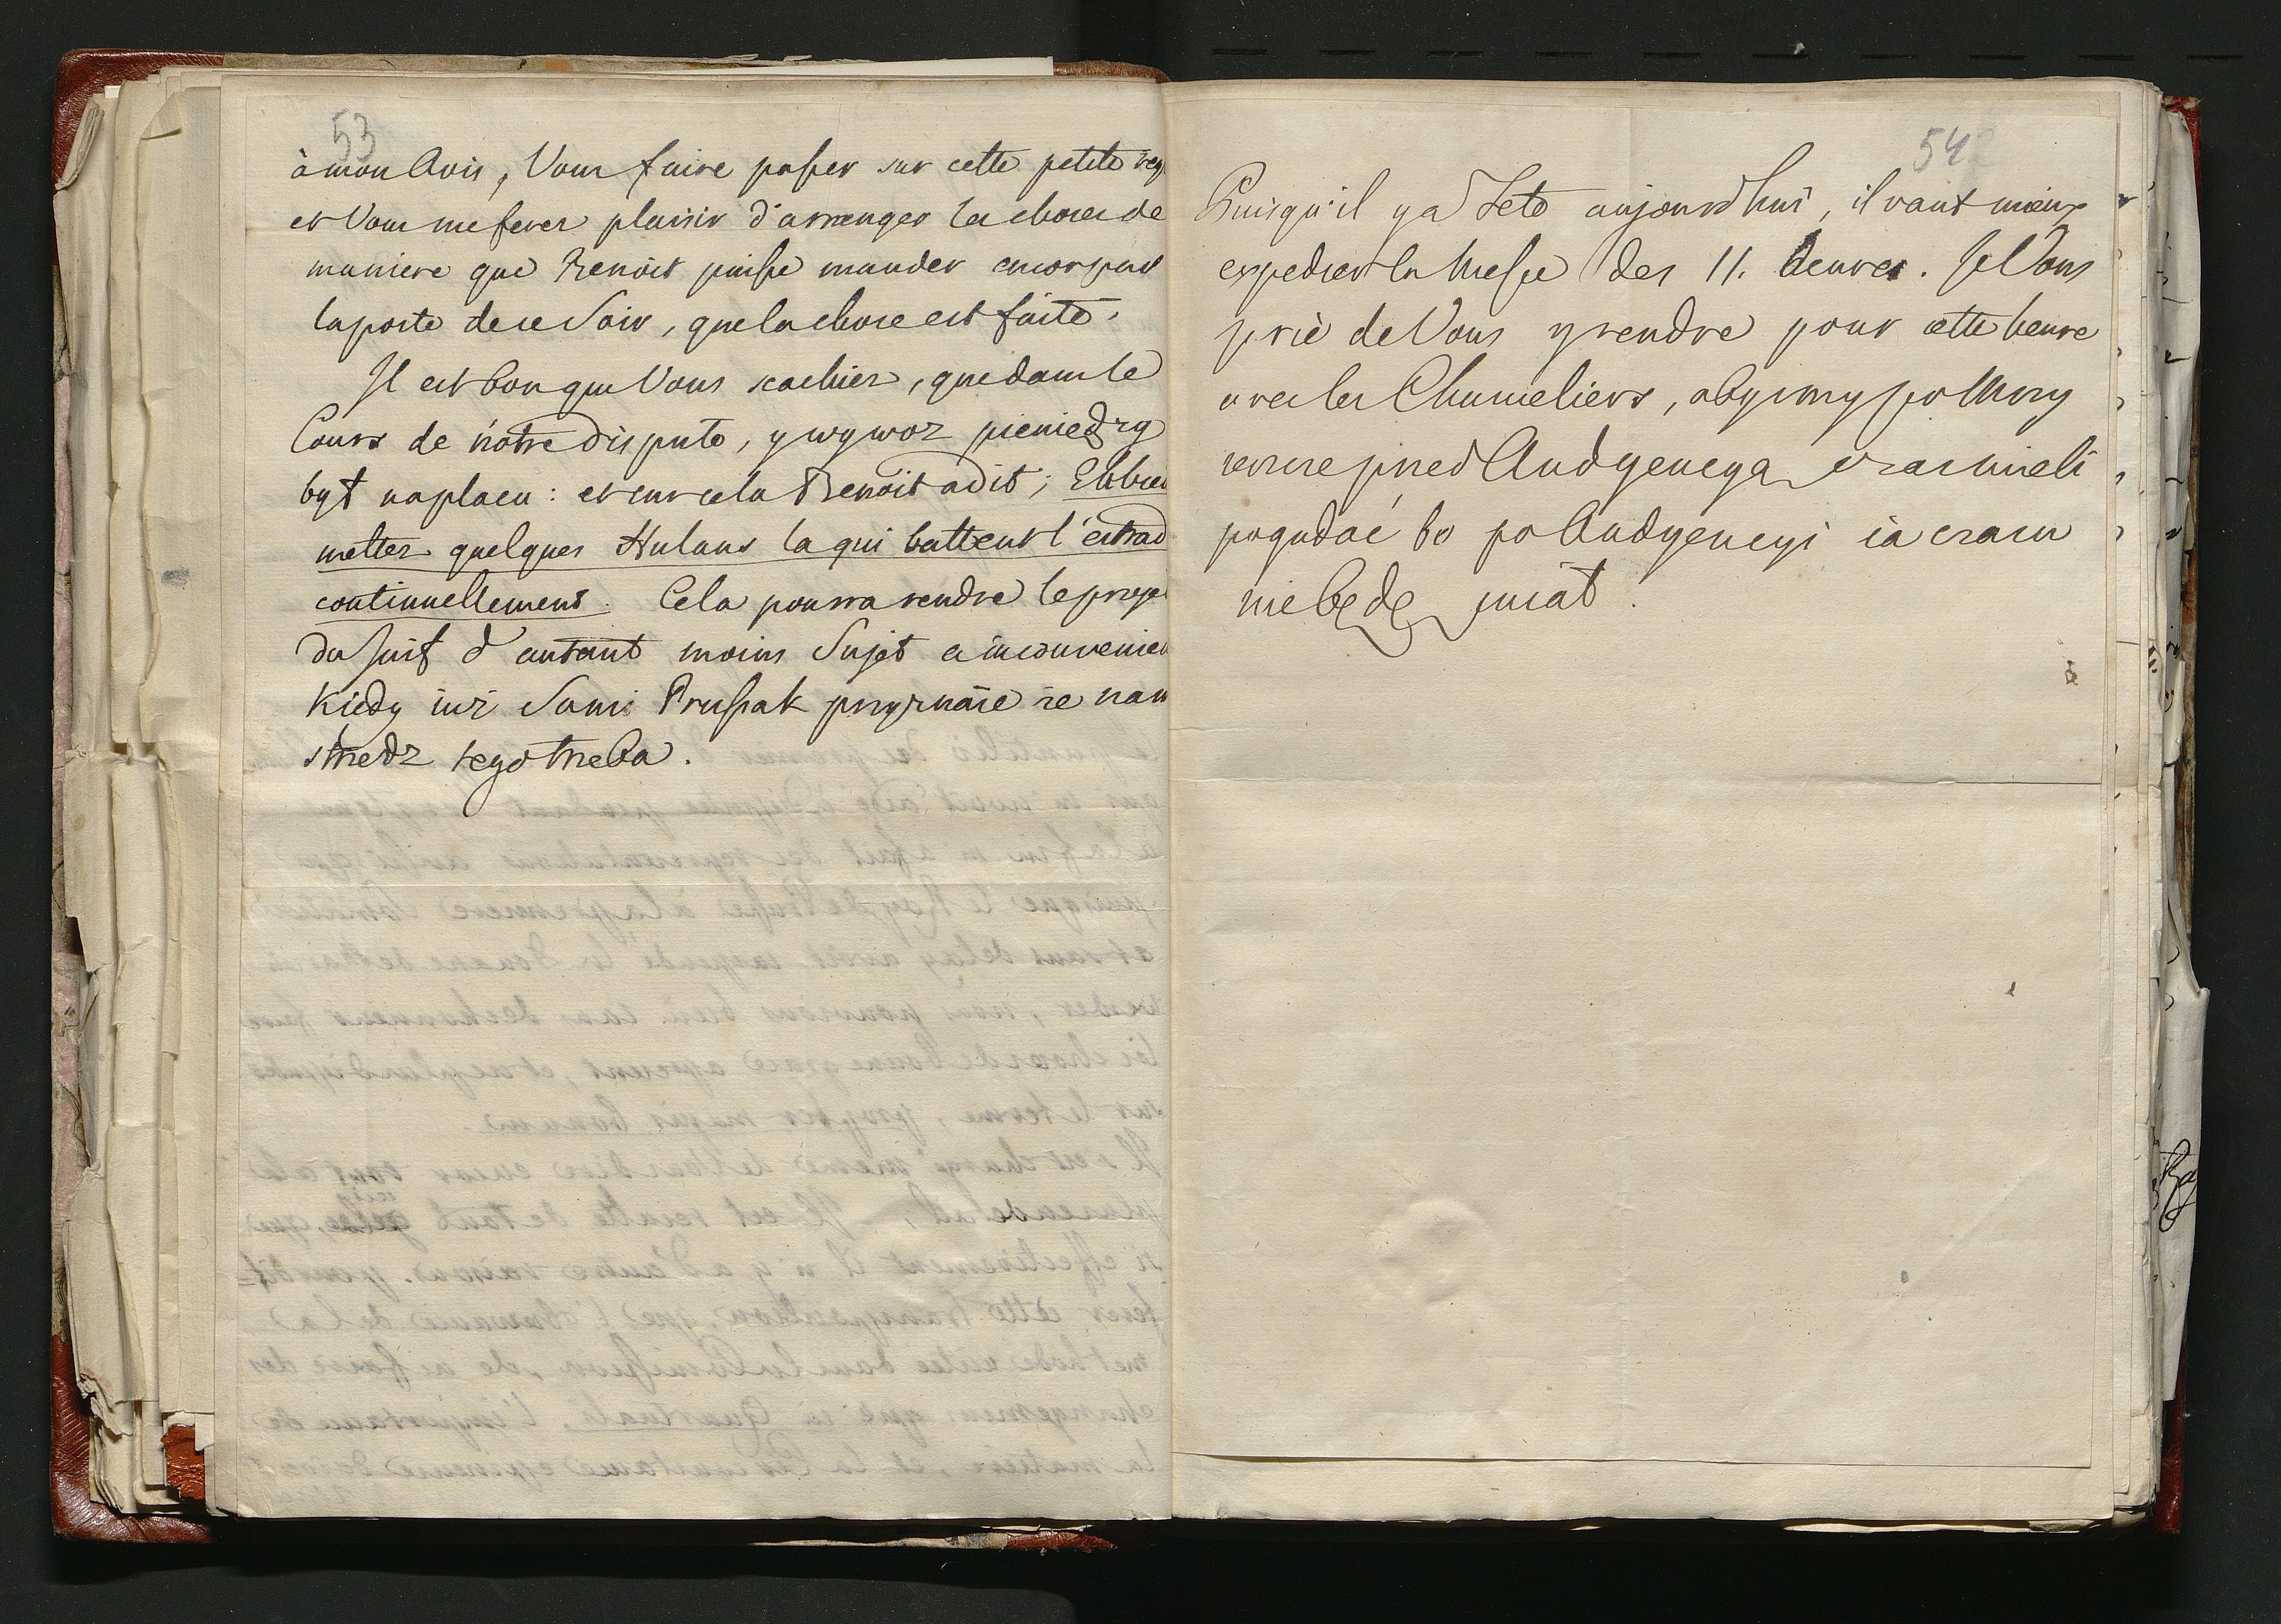 53
à mon Avis, Vous faire passer sur cette petite
et Vous me ferez plaisir d'arranger la chose de
maniere que Benoit puisse mander encor par
la poste de ce Soir, que la chose est faite.
Il est bon que Vous scachiez, que dans le
Cours de nôtre dispute, y wywoz pieniędzy
był na placu: et sur cela Benoit a dit; Ehbien
mettez quelques Hulans la qui battent l'estrad
continuellement. Cela pourra rendre le projet
du Juif d'autant moins Sujet a inconvenien
Kiedy iuż Sam Prussak przyznaie że nam
strzedz tego trzeba.
54
Puisqu'il y a Fete aujourdhui, il vaut mieux
expedier la Messe des 11. heures. Je Vous
prie de Vous y rendre pour cette heure
avec les Chanceliers, abysmy po Mszy
ieszcze przed Audyencyą czas mieli
pogadać bo po Audyencyi ia czasu
nie będę miał.